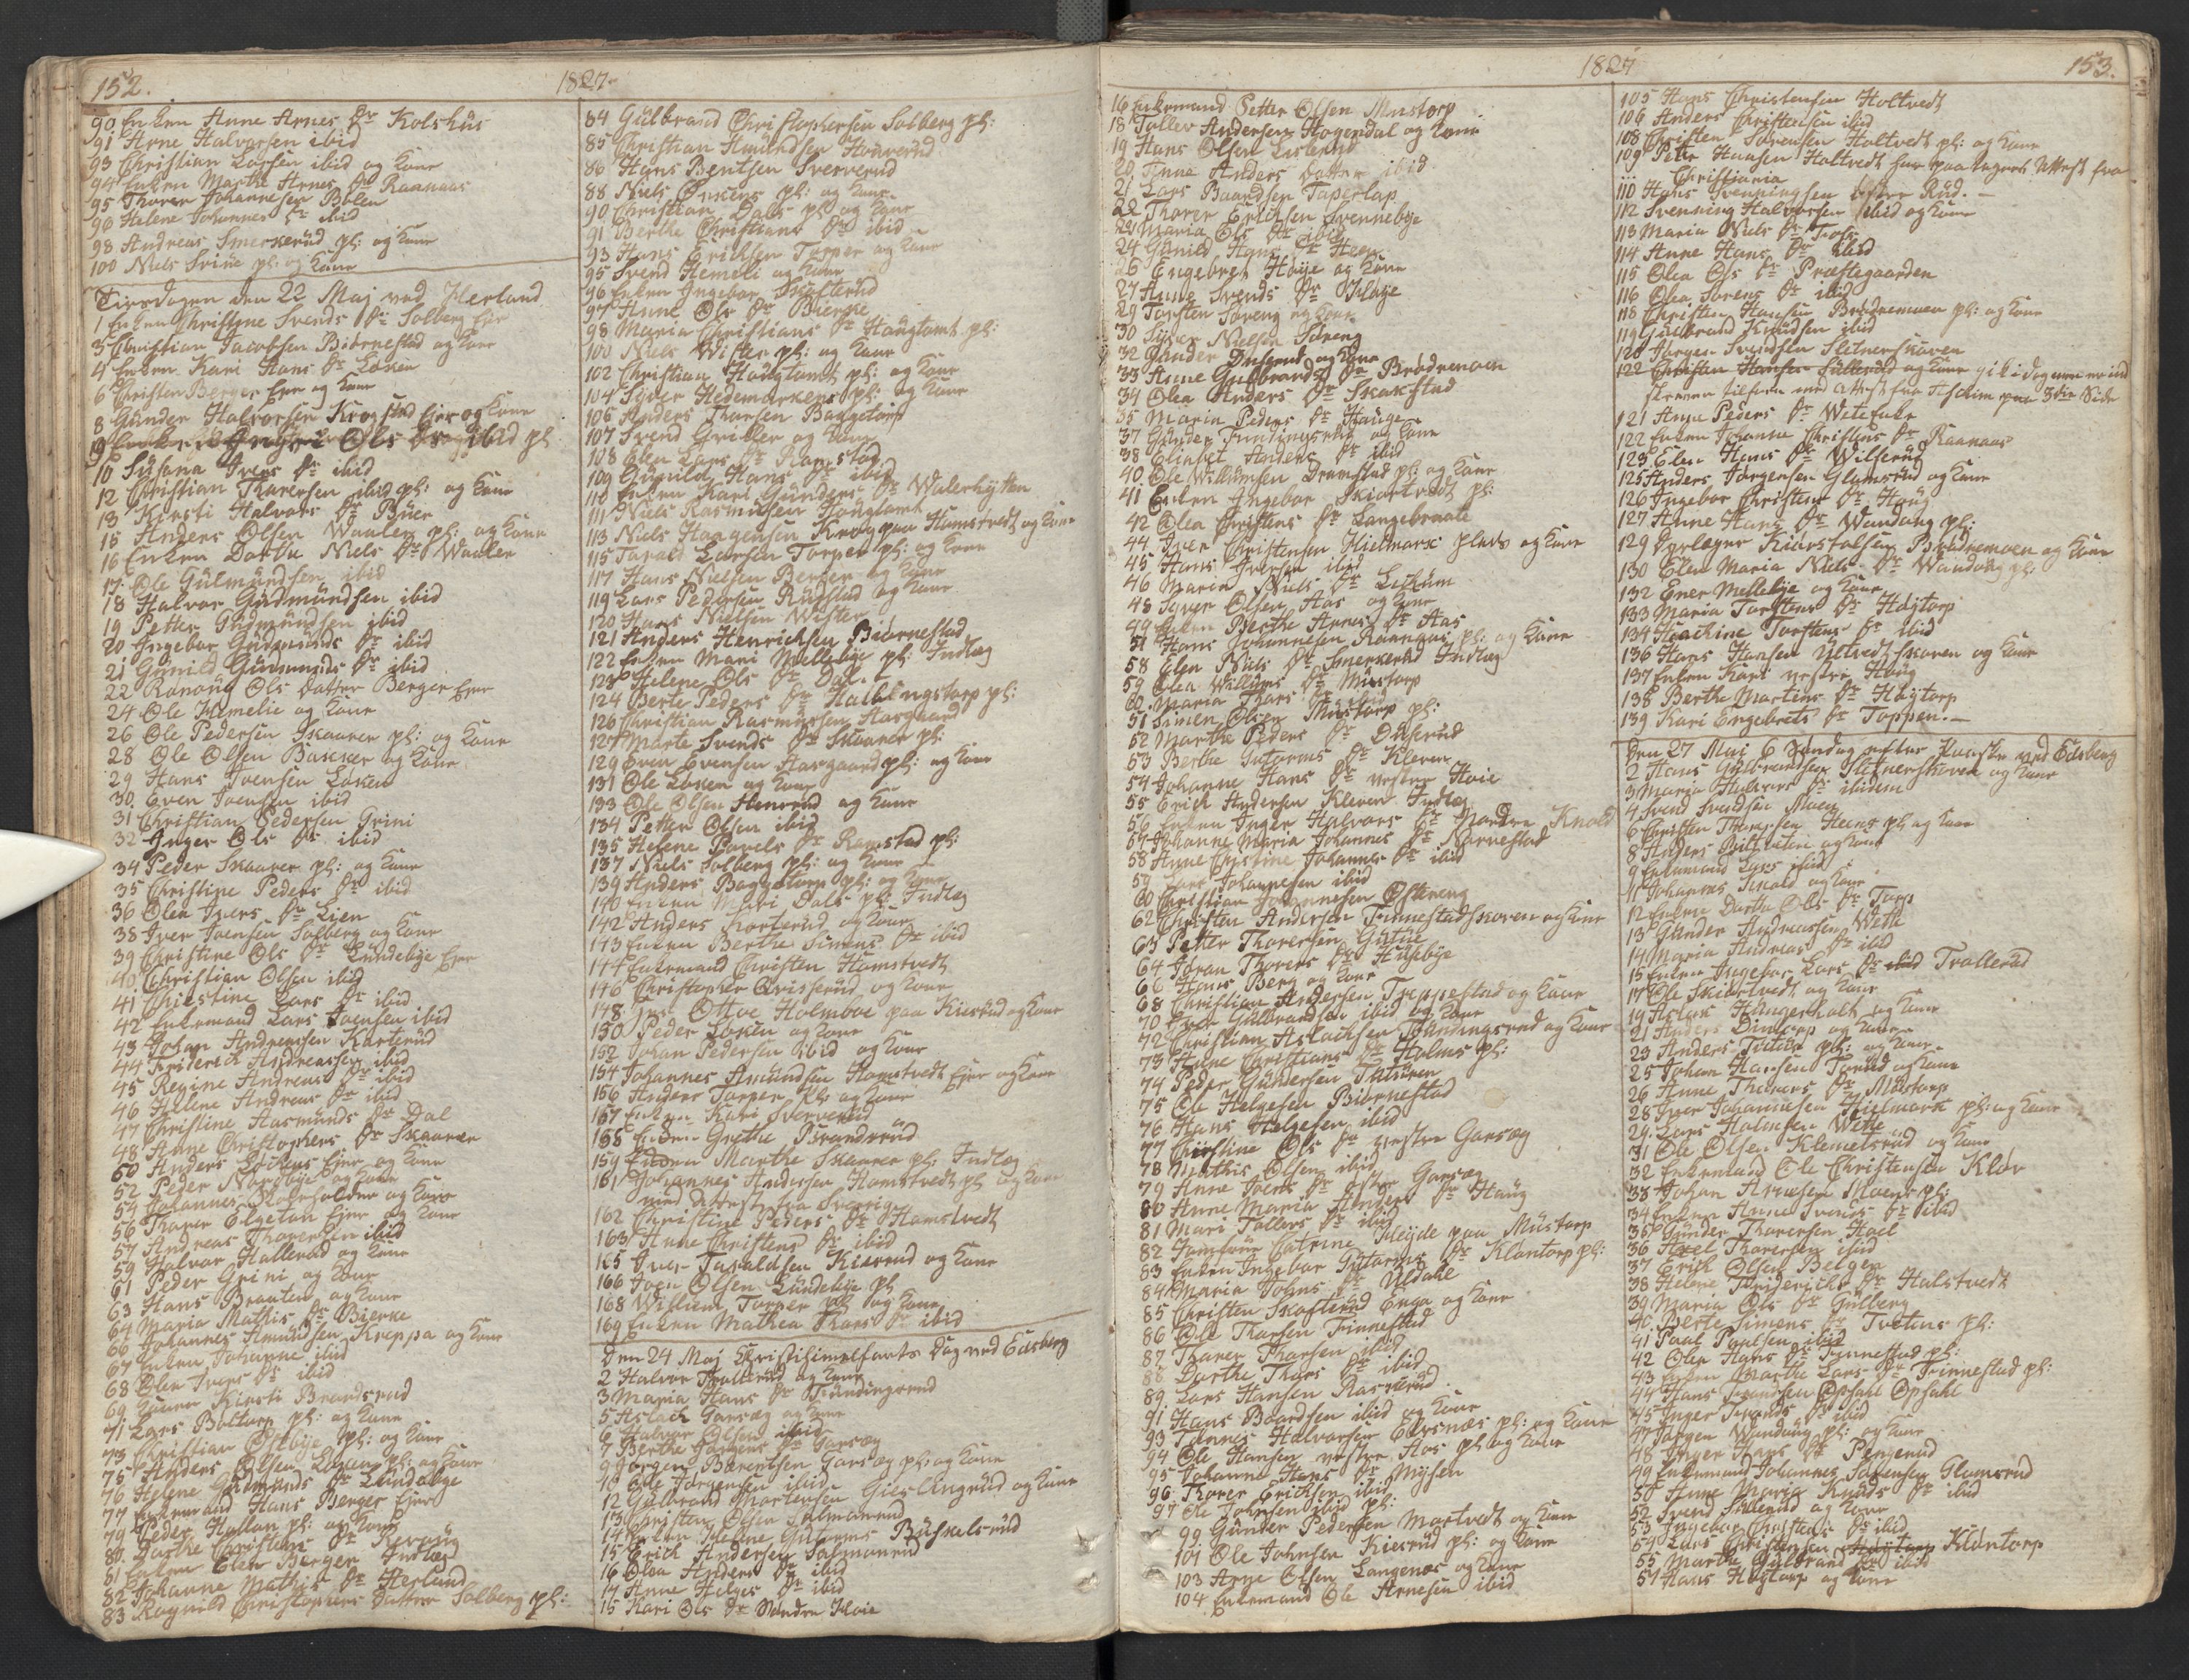 152.
1827.
90 Enken Anne Arnes Dr Kolshus
91 Arne Halvorsen ibid
93 Christian Larsen ibid og Kone
94 Enken Marthe Arnes Dr Raanaas
95 Thorer Johannesen Bølen
96 Helene Johannes Dr ibid
98 Andreas Smerkerud pl: og Kone
100 Niels Sviue pl: og Kone
Tirsdagen den 22 Maj ved Herland
1 Enken Christine Svends Dr Solberg Ejer
3 Christian Jacobsen Biørnestad og Kone
4 Enken Kari Hans Dr Løken
6 Christen Berger Ejer og Kone
8 Gunder Halvorsen Krogstad Ejer og Kone
9 Ols Dr ibid pl
10 Susana Ivers Dr ibid
12 Christian Thorersen ibid pl: og Kone
13 Kirsti Halvors Dr Buer
15 Anders Olsen Waaler pl: og Kone
16 Enken Dorthe Niels Dr Waaler
17 Ole Gulmundsen ibid
18 Halvor Gudmundsen ibid
19 Petter Gudmundsen ibid
20 Ingebor Gudmunds Dr ibid
21 Gunild Gudmunds Dr ibid
22 Ranaug Ols Datter Berger Ejer
24 Ole Hemelie og Kone
26 Ole Pedersen Skaarer pl: og Kone
28 Ole Olsen Bakker og Kone
29 Hans Joensen Løken
30. Even Joensen ibid
31 Christian Pedersen Grini
32 Inger Ols Dr ibid
34 Peder Skaarer pl: og Kone
35 Christine Peders Dr ibid
36 Olea Ivers Dr Lien
38 Iver Joensen Solberg og Kone
39 Christine Ols Dr Lundebye Ejer
40 Christian Olsen ibid
41 Christine Lars Dr ibid
42 Enkemand Lars Joensen ibid
43 Johan Andreassen Korterud
44 Friderich Andreassen ibid
45 Regine Andreas Dr ibid
46 Helene Andreas Dr ibid
47 Christine Aasmunds Dr Dal
48 Anne Christophers Dr Skaarer
50 Anders Løchens Ejer og Kone
52 Peder Nordbye og Kone
54 Johannes og Kone
56 Thorer Elgetun Ejer og Kone
57 Andreas Thorersen ibid
59 Halvor Hallerud og Kone
61 Peder Grini og Kone
63 Hans Braaten og Kone
64 Maria Mathis Dr Bierke
66 Johannes Amundsen Kreppa og Kone
67 Enken Johanne ibid
68 Olea Ivers Dr ibid
69 Kirsti Brandsrud
71 Lars Boltorp pl: og Kone
73 Christian Østbye pl: og Kone
75 Anders Olsen Løken pl: og Kone
76 Helene Gudmunds Dr Lundebye
77 Enkemand Hans Berger Ejer
79 Peder Hallan pl: og Kone
80. Dorthe Christians Dr
81 Enken Elen Berger Indlæg
82 Johanne Mathis Dr Herland
83 Ragnild Christophers Datter Solberg pl:
84 Gulbrand Christophersen Solberg pl:
85 Christian Amundsen
86 Hans Bentsen Sververud
88 Niels pl: og Kone
90 Christian Dals pl og Kone
91 Berthe Christians Dr ibid
93 Hans Erichsen Torper og Kone
95 Svend Hemeli og Kone
96 Enken Ingebor Skofterud
97 Anne Ols Dr Bierke
98 Maria Christians Dr Haugtomt pl:
100 Niels Wister pl: og Kone
102 Christian Haugtomt pl: og Kone
104 Syver Hedemarkens pl: og Kone
106 Anders Thorsen Baggetorp
107 Svend Griller og Kone
108 Elen Lars Dr Ramstad
109 Gunild Hans Dr ibid
110 Enken Kari Gunders Dr Walerhytten
111 Niels Rasmusen Haugtomt
113 Niels Haagensen Krog paa Hamstvedt og Kone
115 Tarald Larsen Torper pl: og Kone
117 Hans Nielsen Berger og Kone
119 Lars Pedersen Rudstad og Kone
120 Hans Nielsen Wister
121 Anders Henrichsen Biørnestad
122 Enken Mari Mellebye pl: Indlæg
123 Helene Ols Dr Dal
124 Berte Peders Dr Hallingstorp pl:
126 Christian Rasmusen Aasgaard
127 Marte Svends Dr Skaarer pl:
129 Even Evensen Aasgaard pl: og Kone
131 Ole Løken og Kone
133 Ole Olsen Henerud og Kone
134 Petter Olsen ibid
135 Helene Povels Dr Ramstad pl:
137 Niels Solberg pl: og Kone
139 Anders Baggetorp pl: og Kone
140 Enken Mari Dals pl: Indlæg
142 Anders Korterud og Kone
143 Enken Berthe Simens Dr ibid
144 Enkemand Christen Hamstvedt
146 Christopher Qvisserud og Kone
148 Otto Holmboe paa Kiserud og Kone
150 Peder Løken og Kone
152 Johan Pedersen ibid og Kone
154 Johannes Amundsen Hamstvedt Ejer og Kone
156 Anders Torper pl: og Kone
157 Enken Kari Sververud
158 Enken Grethe Brandsrud
159 Enken Marthe Skaarer pl: Indlæg
161 Johannes Andersen Hamstvedt pl og Kone
med Attest fra Sverrig
162 Christine Peders Dr Hamstvedt
163 Anne Christens Dr ibid
165 Iver Taraldsen Kiserud og Kone
166 Joen Olsen Lundebye pl
168 Willum Torper pl og Kone
169 Enken Mathea Thors Dr ibid
Den 24 Maj Christihimelfarts Dag ved Edsberg
2 Halvor Trollerud og Kone
3 Maria Hans Dr Trundingsrud
5 Aslach Garseg og Kone
6 Halvor Olsen ibid
7 Berthe Jørgens Dr Garseg
9 Jørgen Berentsen Garseg pl: og Kone
10 Ole Jørgensen ibid
12 Gulbrand Mortensen og Kone
13 Christen Olsen Salmonrud
14 Enken Helene Gutorms Buskelsrud
15 Erich Andersen Salmonrud
16 Olea Anders Dr ibid
17 Anne Helges Dr ibid
15 Kari Ols Dr Søndre Hoie
1827
153.
16 Enkemand Petter Olsen Mustorp
18 Tollev Andersen Hogendal og Kone
19 Hans Olsen Lislerud
20. Anne Anders Datter ibid
21 Lars Baardsen Taperlap
22 Thorer Erichsen Svennebye
23 Maria Ols Dr ibid
24 Gunild Hans Dr Heen
26 Engebret Høye og Kone
27 Anne Svends Dr Melbye
29 Torsten Søreng og Kone
30 Syver Nielsen Søreng
32 Gunder Duserud og Kone
33 Anne Gulbrands Dr Brødremoen
34 Olea Anders Dr Skakstad
35 Maria Peders Dr Hauger
37 Gunder Trundingsrud og Kone
38 Elinbet Anders Dr ibid
40. Ole Willumsen Dramstad pl: og Kone
41 Enken Ingebor Skiørtvedt pl:
42 Olea Christens Dr Langebraate
44 Iver Christensen Hielmark plads og Kone
45 Hans Iversen ibid
46 Maria Niels Dr Lekum
48 Syver Olsen Aas og Kone
49 Enken Berthe Arnes Dr Aas
51 Hans Johannesen Raanaas pl: og Kone
58 Elen Niels Dr Smerkerud Indlæg
59 Olea Willums Dr Mustorp
60. Maria Thors Dr ibid
51 Simen Olsen Mustorp pl:
52 Marthe Peders Dr Duserud
53 Berthe Gutorms Dr Kleven
54 Johanne Hans Dr vestre Hoie
55 Erich Andersen Kleven Indlæg
56 Enken Inger Halvors Dr Nordre Knold
57 Johanne Maria Johannes Dr Narvestad
58 Anne Christine Johannes Dr ibid
59 Lars Johannesen ibid
60 Christian Johannesen Østereng
62 Christen Andersen Trinnestadskoven og Kone
63 Petter Thorersen Gutue
64 Jøran Thorers Dr Hulebye
66 Hans Berg og Kone
68 Christian Andersen Treppestad og Kone
70 Iver Gulbrandsen ibid og Kone
72 Christian Aslachsen Trundingsrud og Kone
73 Anne Christians Dr Holms pl:
74 Peder Gundersen Tuturen
75 Ole Helgesen Biørnestad
76 Hans Helgesen ibid
77 Christine Ols Dr vestre Garseg
78 Mathis Olsen ibid
79 Anne Joens Dr østre Garseg
80 Anne Maria Anders Dr Haug
81 Mari Tollers Dr ibid
82 Jomfrue Catrine Heyde paa Mustorp
83 Enken Ingebor Gutorms Dr Klontorp pl:
84 Maria Johns Dr Uldahl
85 Christen Skofterud Enga og Kone
86 Ole Thorsen Trinnestad
87 Thorer Thorsen ibid
88 Dorthe Thors Dr ibid
89. Lars Hansen Raskerud
91 Hans Baardsen ibid og Kone
93 Tønnes Halvorsen Edsnæs pl: og Kone
94 Ole Hansen vestre Aas pl: og Kone
95 Johanne Hans Dr Mysen
96 Thorer Erichsen ibid
97 Ole Johnsen ibid pl:
99 Gunder Pedersen Mortvedt og Kone
101 Ole Johnsen Kiserud pl: og Kone
103 Arne Olsen Langenes og Kone
104 Enkemand Ole Arnesen ibid
105 Hans Christensen Holtvedt
106 Anders Christensen ibid
108 Christen Sørensen Holtvedt pl: og Kone
109 Peter Hansen Holtvedt har paategnet Attest fra
Christiania
110 Hans Svenningsen østre Rud.
112 Svenning Halvorsen ibid og Kone
113 Maria Niels Dr Fosser
114 Anne Hans Dr ibid
115 Olea Ols Dr Præstegaarden
116 Olea Sørens Dr ibid
118 Christen Hansen Brødremoen pl: og Kone
119 Gulbrand Knudsen ibid
120 Jørgen Svendsen Slitnerskoven
122 Christen Hansen Sutterud og Kone gik i dag
skrevne tilforn med Attest fra Askim paa 3die Side
121 Anne Peders Dr Wetefuhr
122 Enken Johanne Christens Dr Raanaas
123 Elen Hans Dr Wilserud
125 Anders Jørgensen Glamsrud og Kone
126 Ingebor Christens Dr Haug
127 Anne Hans Dr Wandung pl:
129 Kierstolsen Brødremoen og Kone
130 Elen Maria Niels Dr Wandung pl:
132 Ener Mellebye og Kone
133 Maria Torstens Dr Høytorp
134 Hoachine Torstens Dr ibid
136 Hans Hansen Ultvedtskoven og Kone
137 Enken Kari vestre Haug
138 Berthe Martins Dr Høytorp
139 Kari Engebrets Dr Toppen.
Den 27 Maj 6 Søndag efter Paaske ved Edsberg
2 Hans Gulbrandsen Slitnerskoven og Kone
3 Maria Halvors Dr ibidem
4 Svend Svendsen Moen
6 Christen Thoresen Heens pl og Kone
8 Anders og Kone
9 Enkemand Lars ibid
11 Johannes Skold og Kone
12 Enken Dorthe Ols Dr Torp
13 Gunder Andreassen Wethe
14 Maria Andreas Dr ibid
15 Enken Ingebor Lars Dr ibid Trollerud
17 Ole Skiørtvedt og Kone
19 Aslak Hangerholt og Kone
21 Anders Dintorp og Kone
23 Anders Tutur pl: og Kone
25 Johan Hansen og Kone
26 Anne Thorers Dr Mustorp
28 Iver Johannesen Hielmark pl: og Kone
29. Lars Holmsen Wethe
31 Ole Olsen Klemetsrud og Kone
32 Enkemand Ole Christensen Kløv
33 Johan Moens pl:
34 Enken Anne Svends Dr ibid
35 Gunder Thorersen Hoel
36 Axel Thorersen ibid
37 Erich Olsen Belgen
38 Helene Friderichs Dr Halstvedt
39 Maria Ols Dr Gulberg
40. Berte Simens Dr Tvetens pl:
41 Paul Paulsen ibid
42 Olea Hans Dr Trinnestad pl:
43 Enken Marthe Lars Dr Trinnestad pl:
44 Hans Opsahl
45 Inger Dr ibid
47 Jørgen Wandung pl: og Kone
48 Inger Hans Dr Pengerud
49 Enkemand Johannes Sørensen Glamsrud
50 Anne Maria Knuds Dr ibid
52 Svend og Kone
53 Ingebor Christens Dr ibid
54 Lars Christensen Høytorp Klontorp
55 Marthe Gulbrands Dr ibid
57 Hans Høytorp og Kone